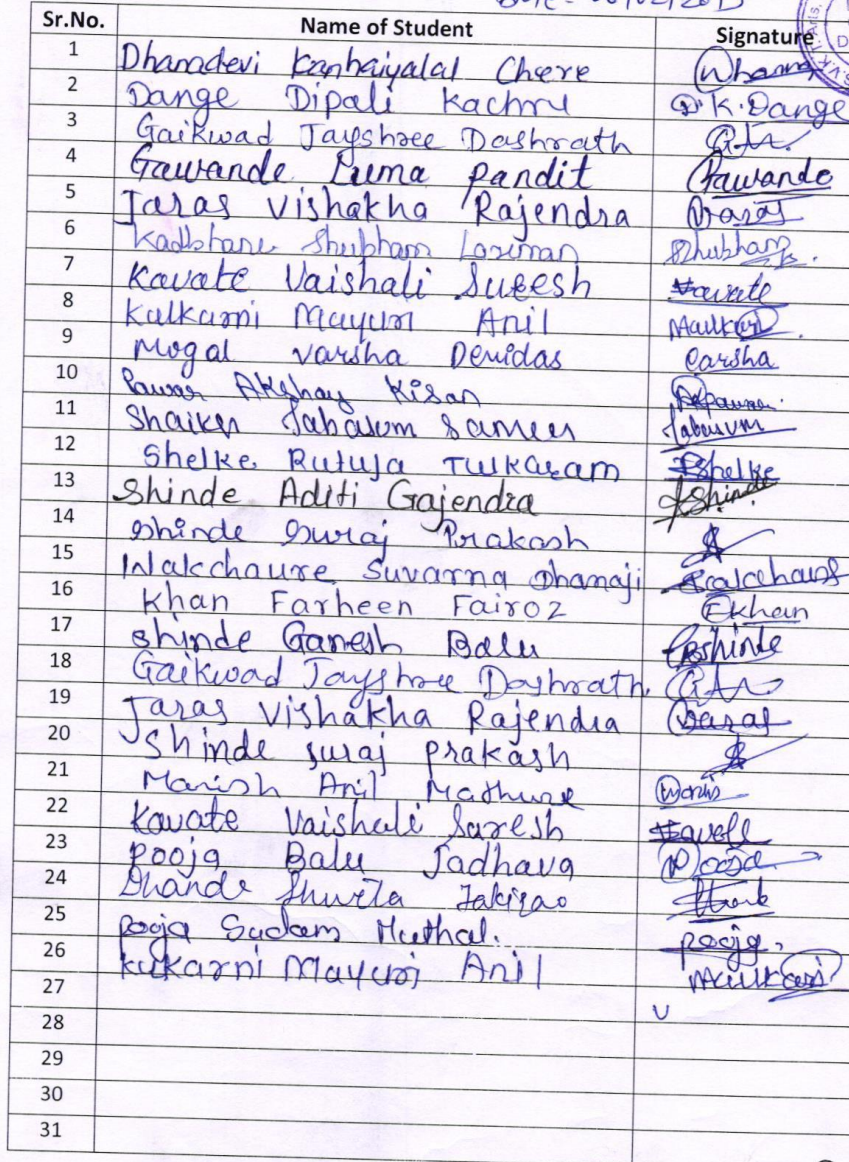 Sr.No. Name of Student Signature
1 Dhanadevi Kanhaiyalal Cheere
2 Dange Dipali Kachru D.K.Dange
3 Gaikwad Jayshree Dashrath
4 Gawande Puma Pandit Gawande
5 Jaras Vishakha Rajendra
6 Kadbhane Shubham Laxman Shubham
7 Kavate Vaishali Suresh Kavate
8 Kulkarni Mayuri Anil
9 Mogal Varsha Devidas Varsha
10 Pawar Akshay Kisan
11 Shaikh Tabasum Tabasum
12 Shelke Rutuja Tukaram Shelke
13 Shinde Aditi Gajendra Shinde
14 Shinde Suraj Prakash
15 Walkchaure Suvarna Dhanaji
16 Khan Farheen Fairoz Fkhan
17 Shinde Ganesh Balu Shinde
18 Gaikwad Jayshree Dashrath
19 Jaras Vishakha Rajendra
20 Shinde Suraj Prakash
21 Manish Anil Mathure
22 Kavate Vaishali Suresh
23 Pooja Balu Jadhava Pooja
24 Dhande
25 Pooja Sudam Muthal. Pooja
26 Kukarni Mayuri Anil
27
28
29
30
31